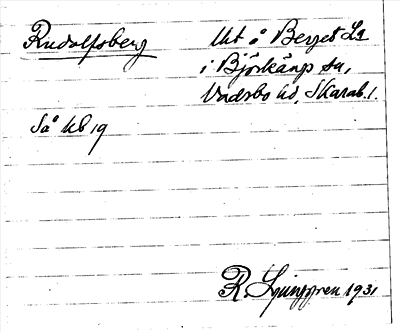 Rudolfsberg
Så kb 19
Ut å Berget La
i Björkängs sn,
Vadsbo hd, Skarab. l.
R. Ljunggren 1931